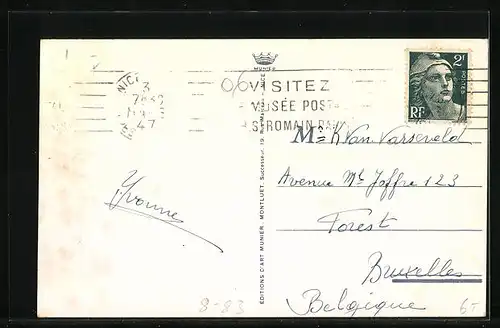 MUNIER
NICE
47
06
VISITEZ
MUSÉE POSTAL
ST ROMAIN
2F
POSTES
RF
Mr K Van Varseveld
Avenue Ml Joffre 123
Forest
Bruxelles
Belgique
Yvonne
EDITIONS D'ART MUNIER, MONTLUET, Successeur, 19, Rue NICE
8-83
6-